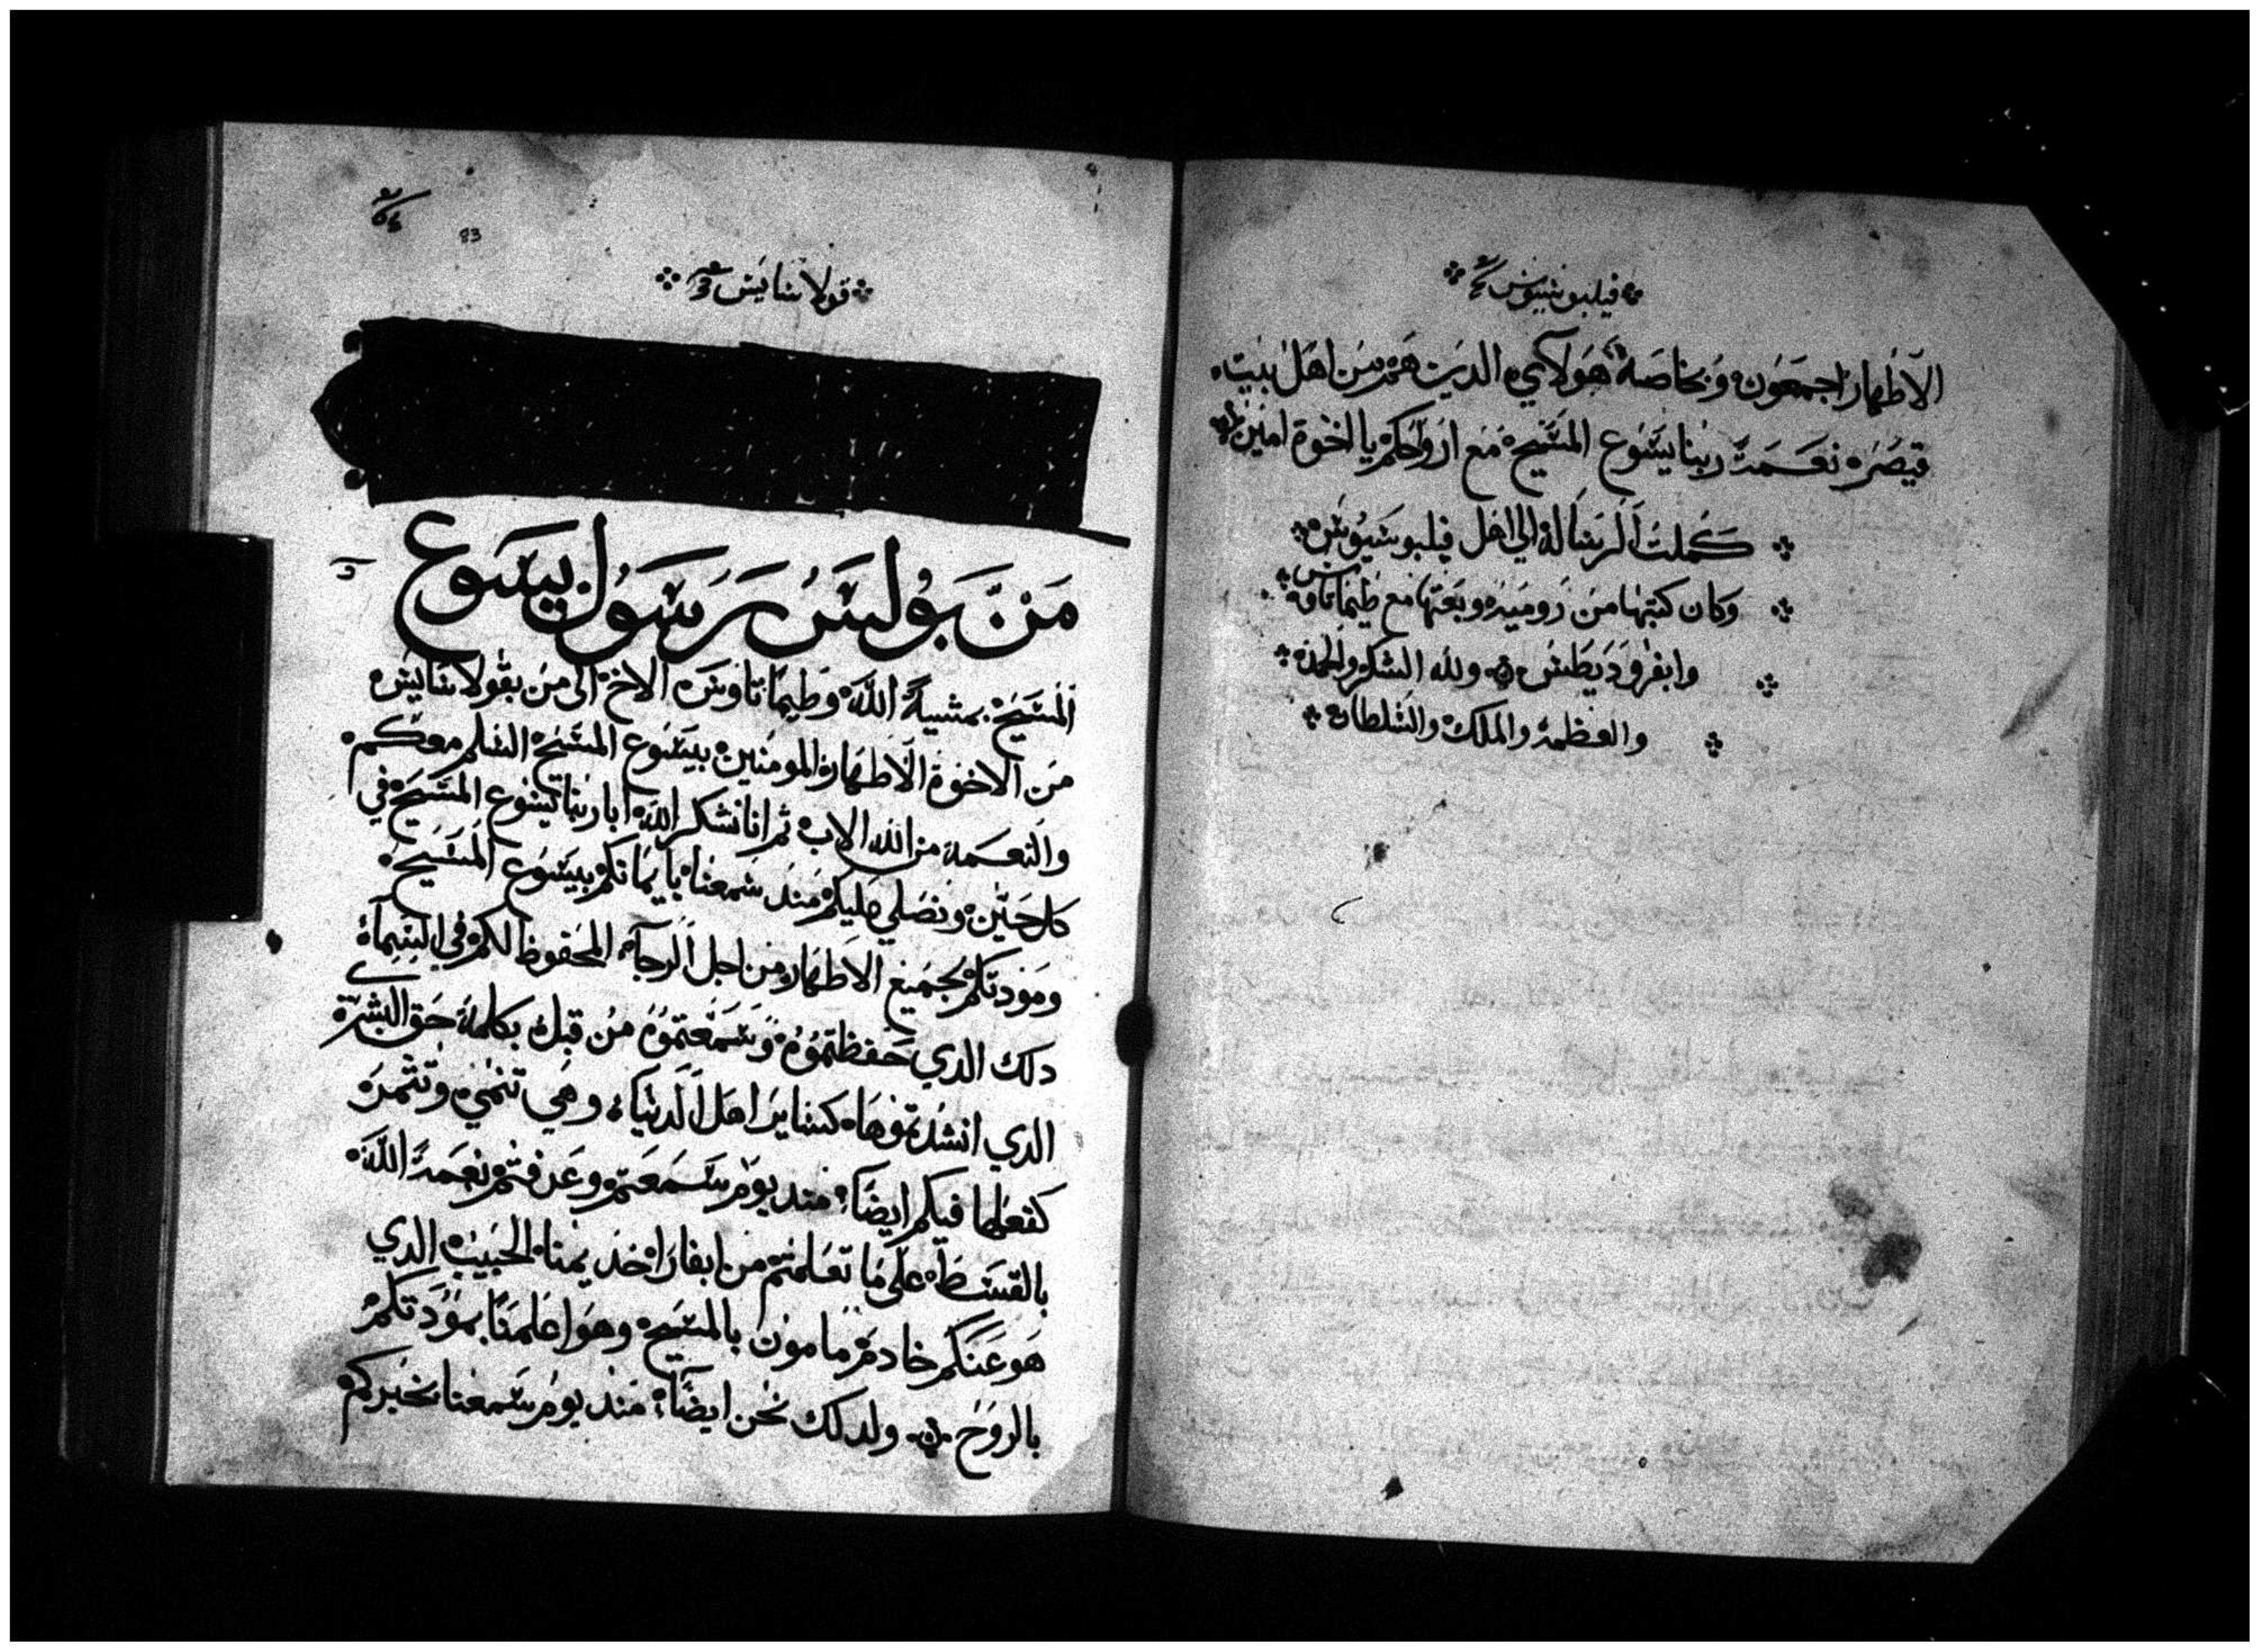 فيلبوسيوس
الاطهار اجمعون وبخاصة هولاي الدين هم من اهل بيت
قيصر نعمت ربنا يسوع المسيح مع ارواحكم يا اخوة امين
كملت الرسالة الي اهل فيلبوسيوس
وكان كتبها من رومية وبعثها مع طيماتاوس
وابفروديطس ولله الشكر والحمد
والعظمة والملك والسلطان
83
قولاسايس
من بولس رسول يسوع
المسيح بمشية الله وطيماتاوس الاخ الى من بقولاسايس
من الاخوة الاطهار المومنين بيسوع المسيح السلم معكم
والنعمة من الله الاب ثم انا نشكر الله ابا ربنا يسوع المسيح في
كل حين ونصلي عليكم مند سمعنا بايمانكم بيسوع المسيح
ومودتكم بجميع الاطهار من اجل الرجآ المحفوظ لكم في السمآ
دلك الدي حفظتموه وسمعتموه من قبل بكلمة حق البشرى
الدي انشدتموها كساير اهل الدنيا وهي تنمي وتثمر
كفعلها فيكم ايضا مند يوم سمعتم وعرفتم نعمة الله
بالقسط على ما تعلمتم من ابفارا خديمنا الحبيب الدي
هو عنكم خادم مامون بالمسيح وهو اعلمنا بمودتكم
بالروح ولدلك نحن ايضا مند يوم سمعنا بخبركم